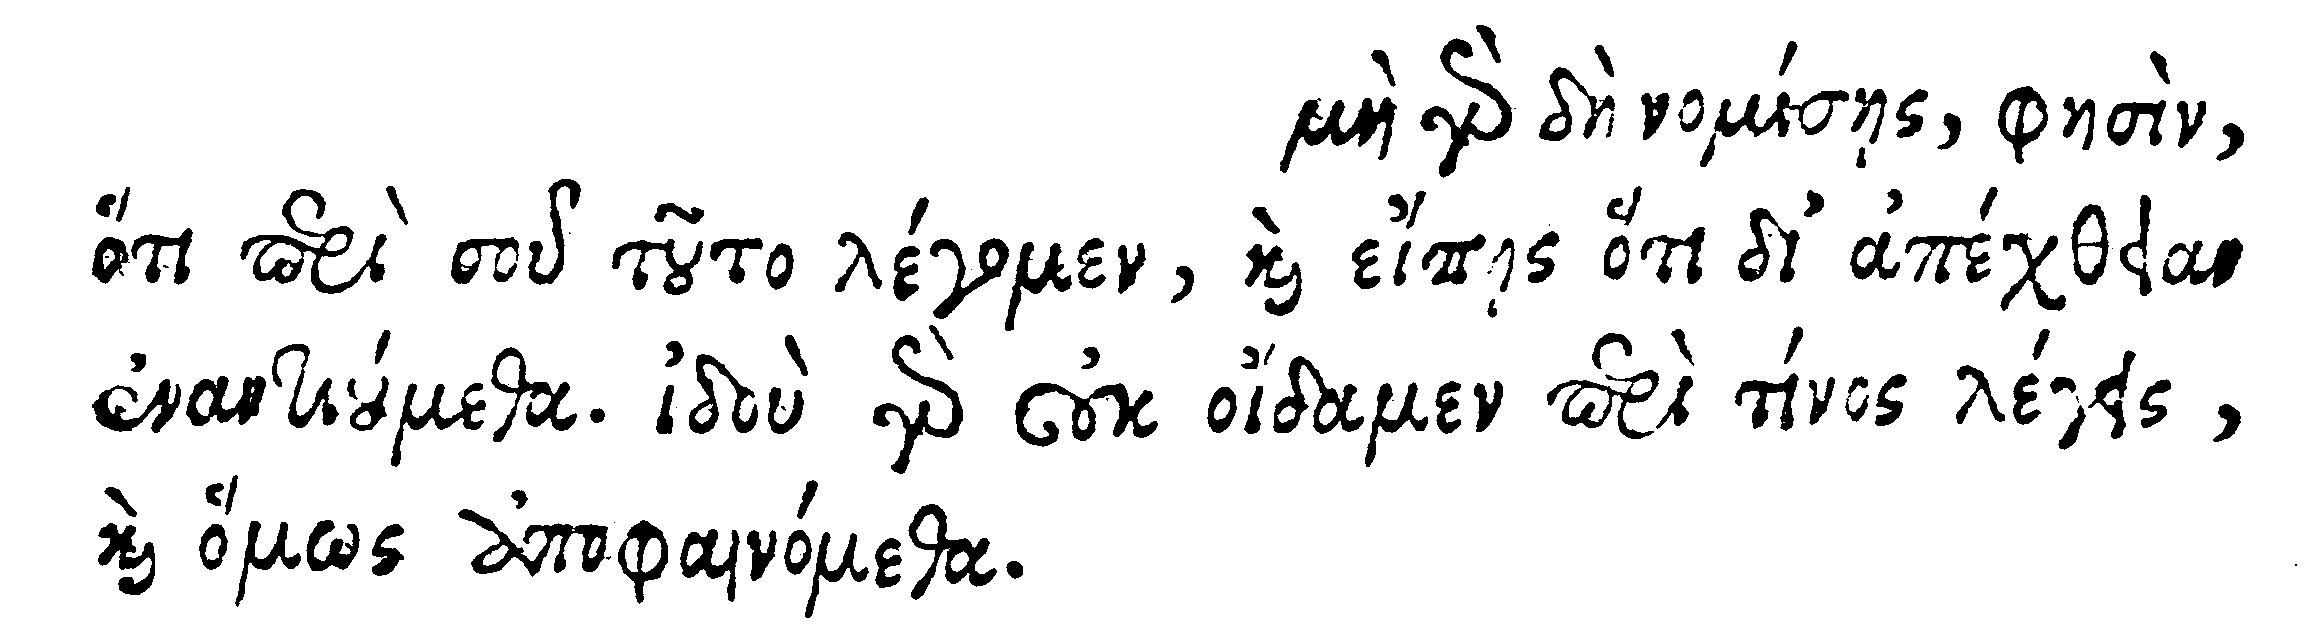 μὴ γὰρ δὴ νομίσῃς, φησὶν,
ὅτι περὶ σοῦ τοῦτο λέγομεν, καὶ εἴπῃς ὅτι δι’ ἀπέχθειαν
ἐναντιούμεθα. ἰδοὺ γὰρ οὐκ οἴδαμεν περὶ τίνος λέγεις,
καὶ ὅμως ἀποφαινόμεθα.